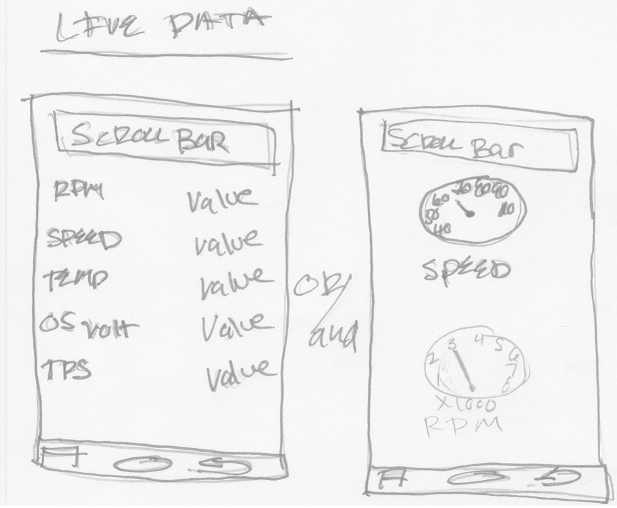 LIVE DATA
SCROLL BAR
RPM value
SPEED value
TEMP value
OS volt Value
TPS value
OR/
and
SCROLL Bar
40 50 60 70 80 90
SPEED
2 3 4 5 6 7 8
X1000
RPM